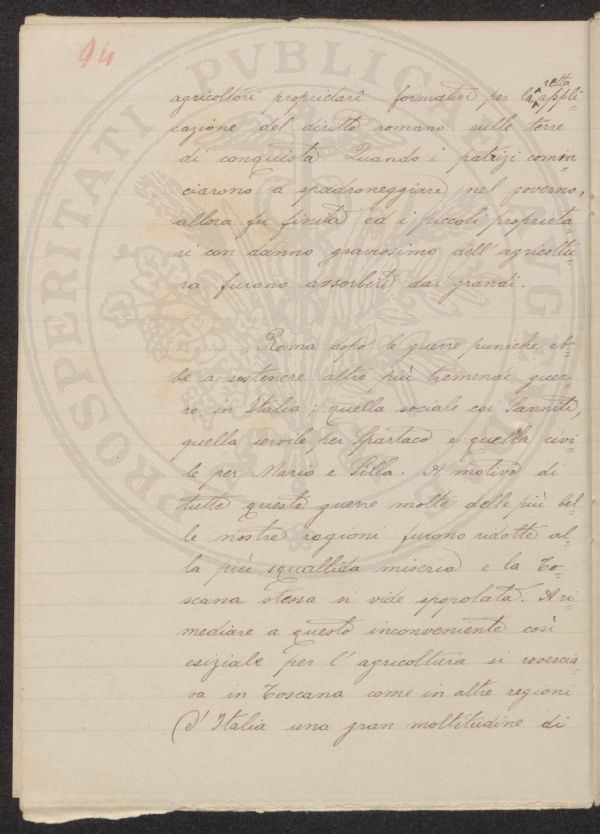 94
retta
agricoltori proprietarî formatisi per la appli=
cazione del diritto romano sulle terre
di conquista. Quando i patrizi comin=
ciarono a spadroneggiare nel governo,
allora fu finita ed i piccoli proprieta
ri con danno gravissimo dell'agricoltu=
ra furono assorbiti dai grandi.
Roma dopo le guerre puniche eb=
be a sostenere altre più tremende guer=
re in Italia; quella sociale coi Sanniti,
quella servile per Spartaco e quella civi=
le per Mario e Silla. A motivo di
tutte queste guerre molte delle più bel=
le nostre regioni furono ridotte al=
la più squallida miseria e la To=
scana stessa si vide spopolata. A ri=
mediare a questo inconveniente così
esiziale per l'agricoltura si rovescia=
va in Toscana come in altre regioni
d'Italia una gran moltitudine di
PROSPERITATI PVBLICAE AVGENDAE